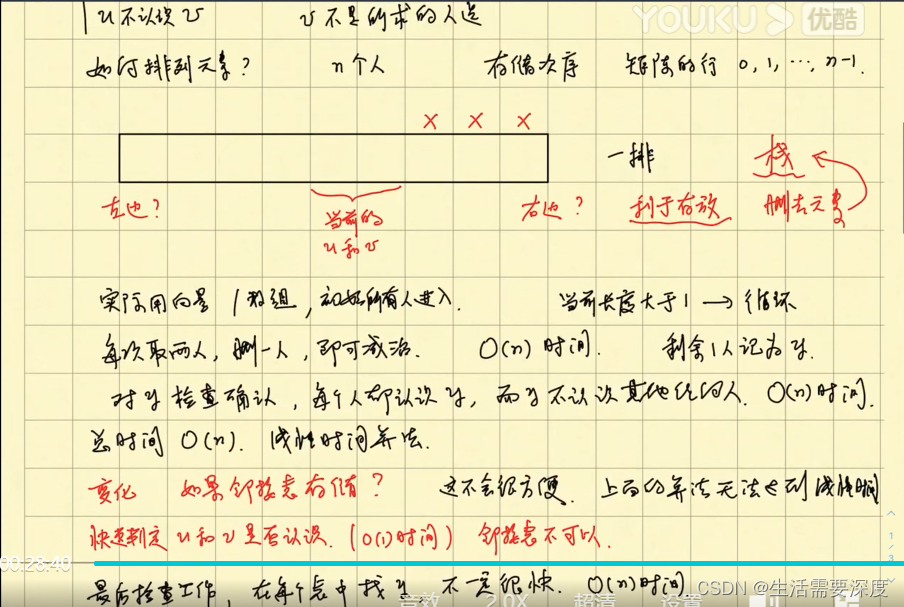 u不认识v v不是所求的人选 YOUKU 优酷
如何排列元素? n个人 存储次序 矩阵的行 0, 1, ..., n-1.
× × ×
一排 栈
左边? 当前的 右边? 利于存放 删去元素
u和v
实际用向量 / 数组, 初始所有人进入. 当前长度大于1 → 循环
每次取两人, 删一人, 即可减治. O(n) 时间. 剩余1人记为y.
对y检查确认, 每个人都认识y, 而y不认识其他任何人. O(n)时间.
总时间 O(n). 线性时间算法.
变化 如果邻接表存储? 这不会很方便. 上面的算法无法达到线性时间
快速判定 u和v是否认识. (O(1)时间) 邻接表不可以.
00:28:40
1/3
最后检查工作, 在每个表中找y, 不一定很快. O(n)时间
音效 2.0X 超清 设置
CSDN @生活需要深度